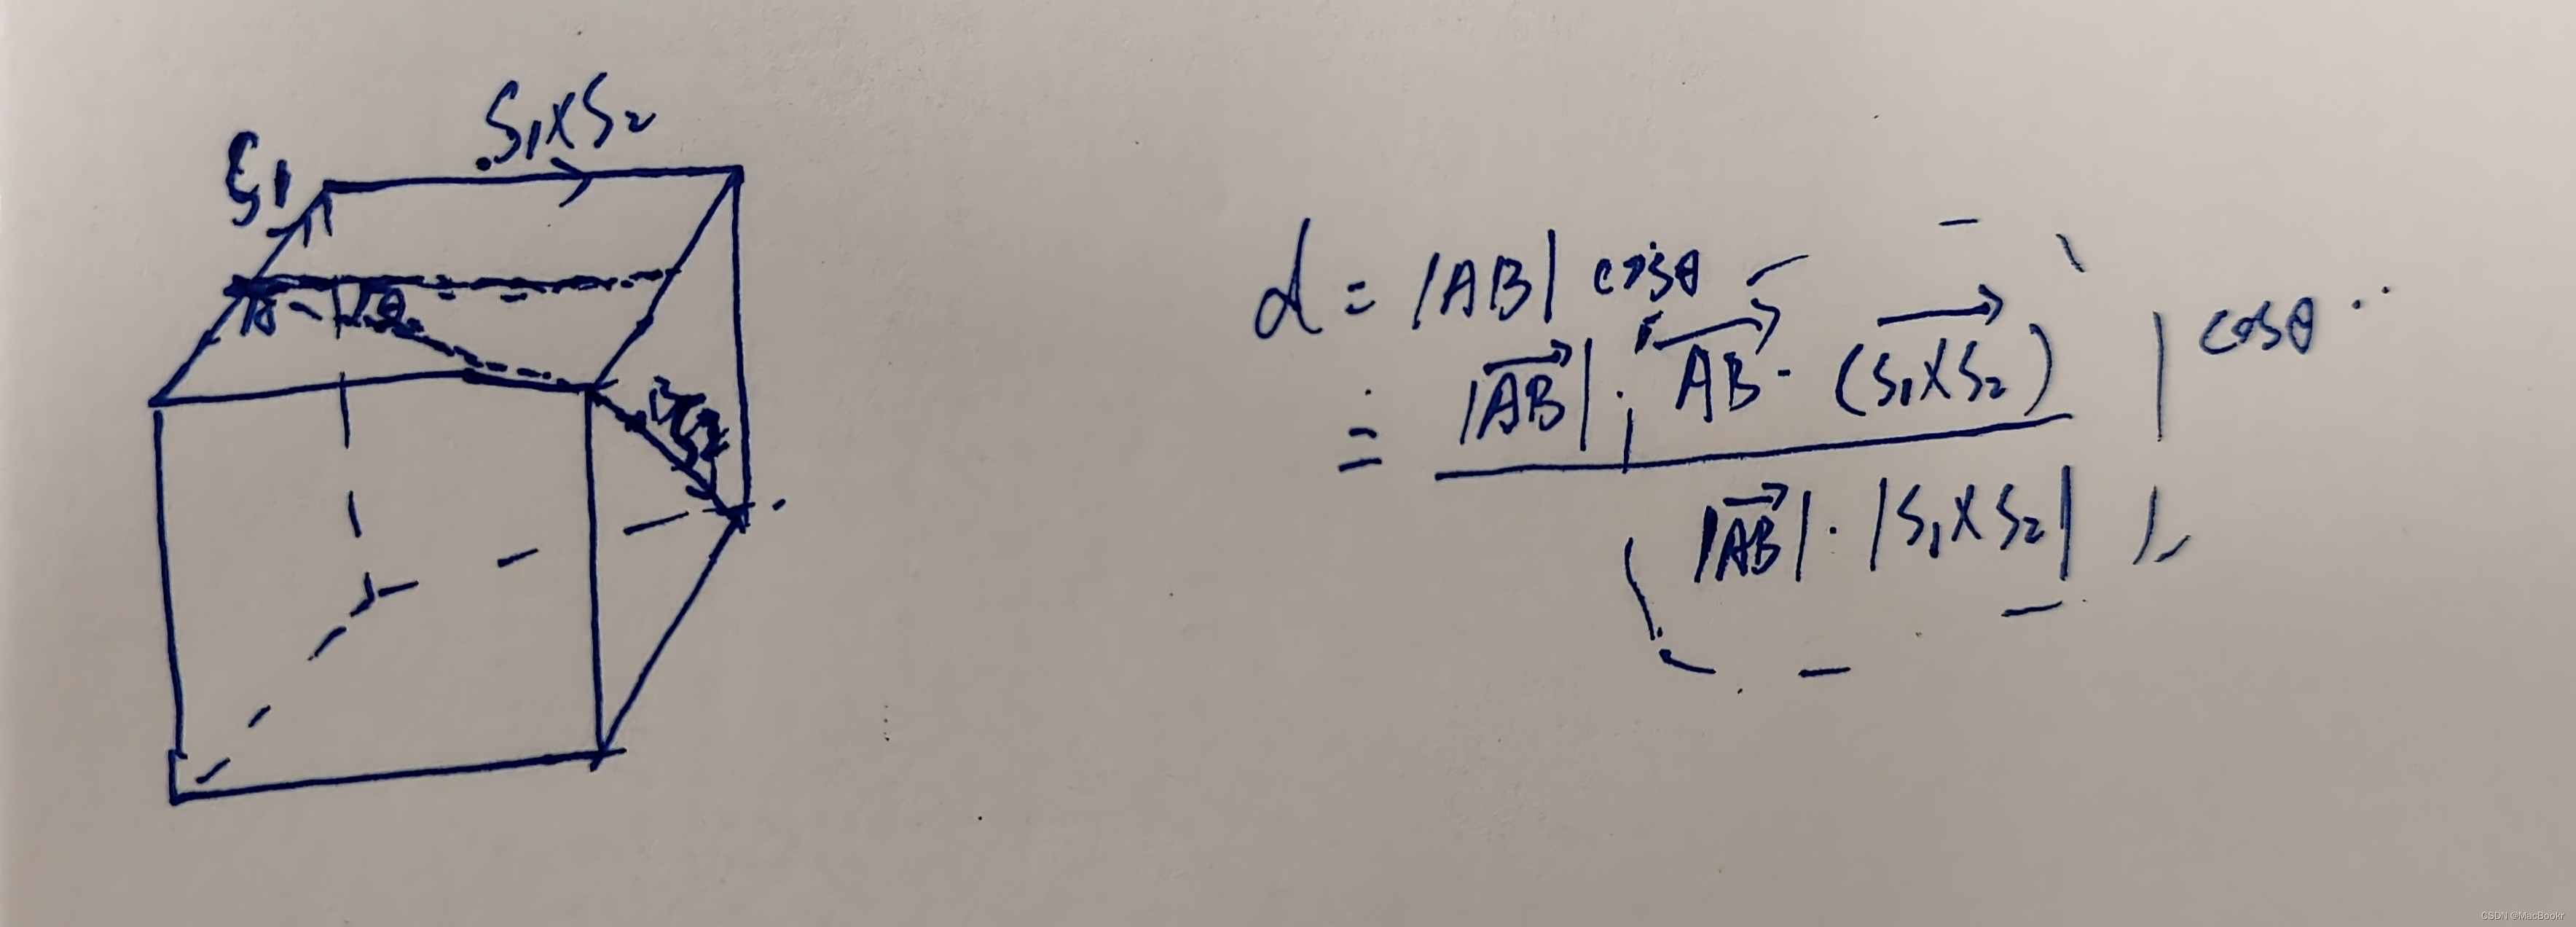 S₁×S₂
S₁
A
θ
B
S₂
d = |AB| cosθ
= |AB| · AB · (S₁×S₂) cosθ
|AB| · |S₁×S₂|
CSDN @MacBookr